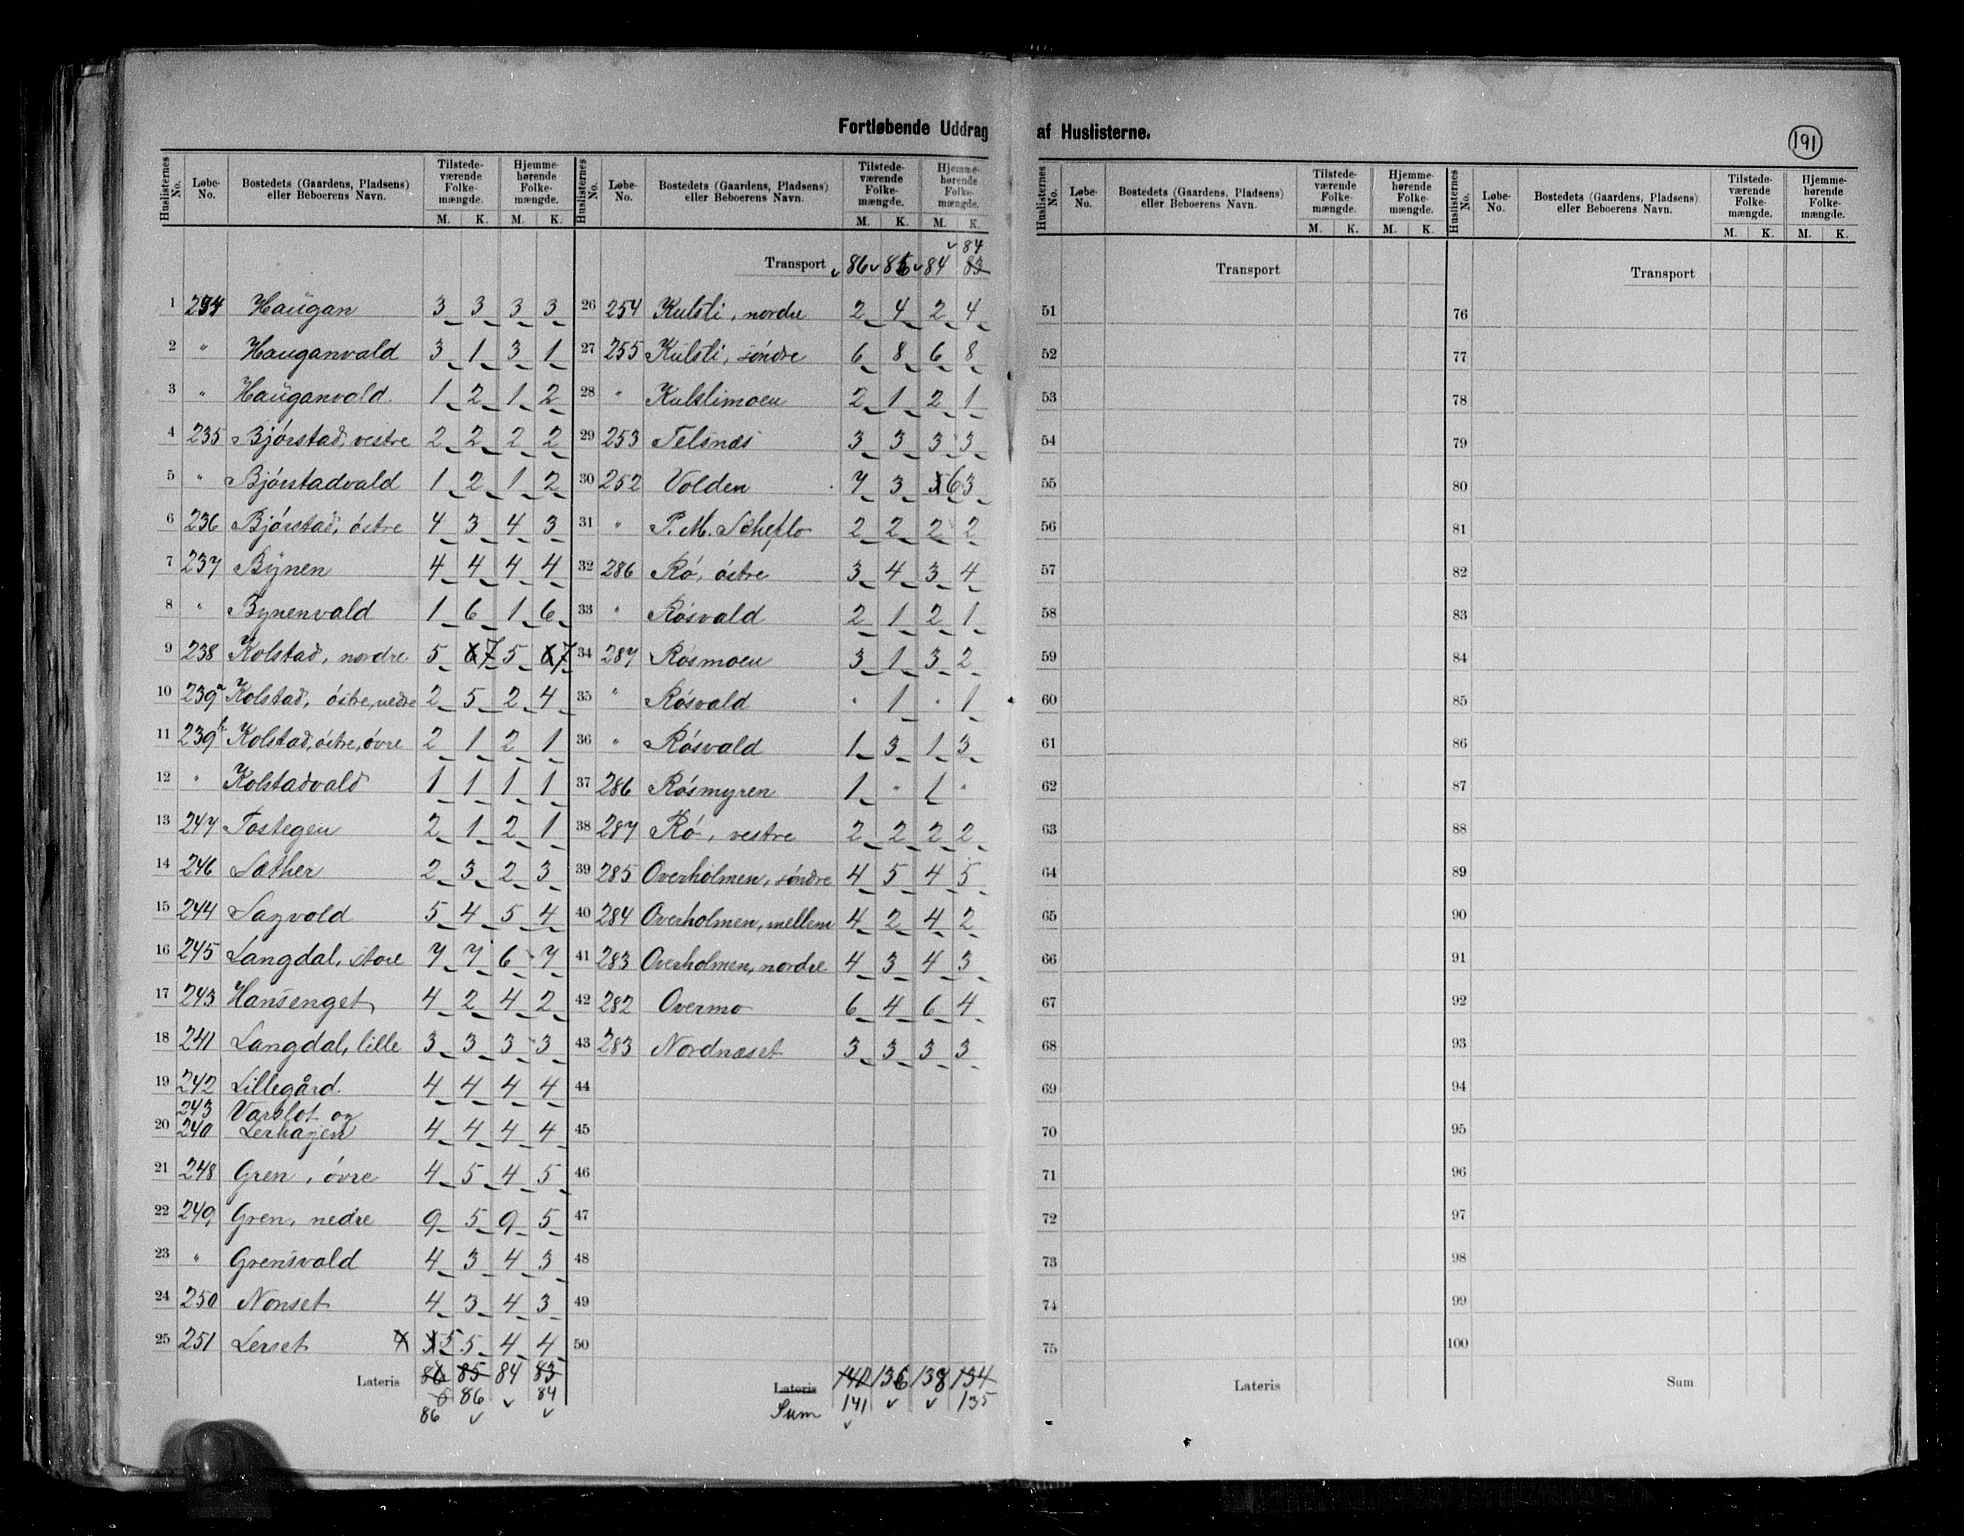 Fortløbende Uddrag af Huslisterne.
191
Huslisternes No. | Løbe-No. | Bostedets (Gaardens, Pladsens) eller Beboerens Navn. | Tilstedeværende Folkemængde. M. K. | Hjemmehørende Folkemængde. M. K.
1 234 Haugan 3 3 3 3
2 " Hauganvald 3 1 3 1
3 " Hauganvald. 1 2 1 2
4 235 Bjórstad, vestre 2 2 2 2
5 " Bjórstadvald 1 2 1 2
6 236 Bjórstad, óstre 4 3 4 3
7 237 Bynen 4 4 4 4
8 " Bynenvald 1 6 1 6
9 238 Kolstad, nordre 5 7 5 7
10 239a Kolstad, óstre, nedre 2 5 2 4
11 239b Kolstad, óstre, óvre 2 1 2 1
12 " Kolstadvald 1 1 1 1
13 247 Tostegen 2 1 2 1
14 246 Sæther 2 3 2 3
15 244 Sagvold 5 4 5 4
16 245 Langdal, store 7 7 6 7
17 243 Hansenget 4 2 4 2
18 241 Langdal, lille 3 3 3 3
19 242 Lillegård. 4 4 4 4
243 Varslot og
20 240 Lerhagen 4 4 4 4
21 248 Gren, óvre 4 5 4 5
22 249 Gren, nedre 9 5 9 5
23 " Grensvald 4 3 4 3
24 250 Nonset 4 3 4 3
25 251 Lerset 5 5 4 4
Lateris 86 85 84 83
86 84
86
Huslisternes No. | Løbe-No. | Bostedets (Gaardens, Pladsens) eller Beboerens Navn. | Tilstedeværende Folkemængde. M. K. | Hjemmehørende Folkemængde. M. K.
84
Transport 86 86 84 83
26 254 Kulsli, nordre 2 4 2 4
27 255 Kulsli, sóndre 6 8 6 8
28 " Kulslimoen 2 1 2 1
29 253 Telsnes 3 3 3 3
30 252 Volden 7 3 6 3
31 " P. M. Scheflo 2 2 2 2
32 286 Ró, óstre 3 4 3 4
33 " Rósvald 2 1 2 1
34 287 Rósmoen 3 1 3 2
35 " Rósvald " 1 " 1
36 " Rósvald 1 3 1 3
37 286 Rósmyren 1 " 1 "
38 287 Ró, vestre 2 2 2 2
39 285 Overholmen, sóndre 4 5 4 5
40 284 Overholmen, mellem 4 2 4 2
41 283 Overholmen, nordre 4 3 4 3
42 282 Overmo 6 4 6 4
43 283 Nordnæset 3 3 3 3
44
45
46
47
48
49
50
Lateris 140 136 138 134
Sum 141 135
Huslisternes No. | Løbe-No. | Bostedets (Gaardens, Pladsens) eller Beboerens Navn. | Tilstedeværende Folkemængde. M. K. | Hjemmehørende Folkemængde. M. K.
Transport
51
52
53
54
55
56
57
58
59
60
61
62
63
64
65
66
67
68
69
70
71
72
73
74
75
Lateris
Huslisternes No. | Løbe-No. | Bostedets (Gaardens, Pladsens) eller Beboerens Navn. | Tilstedeværende Folkemængde. M. K. | Hjemmehørende Folkemængde. M. K.
Transport
76
77
78
79
80
81
82
83
84
85
86
87
88
89
90
91
92
93
94
95
96
97
98
99
100
Sum